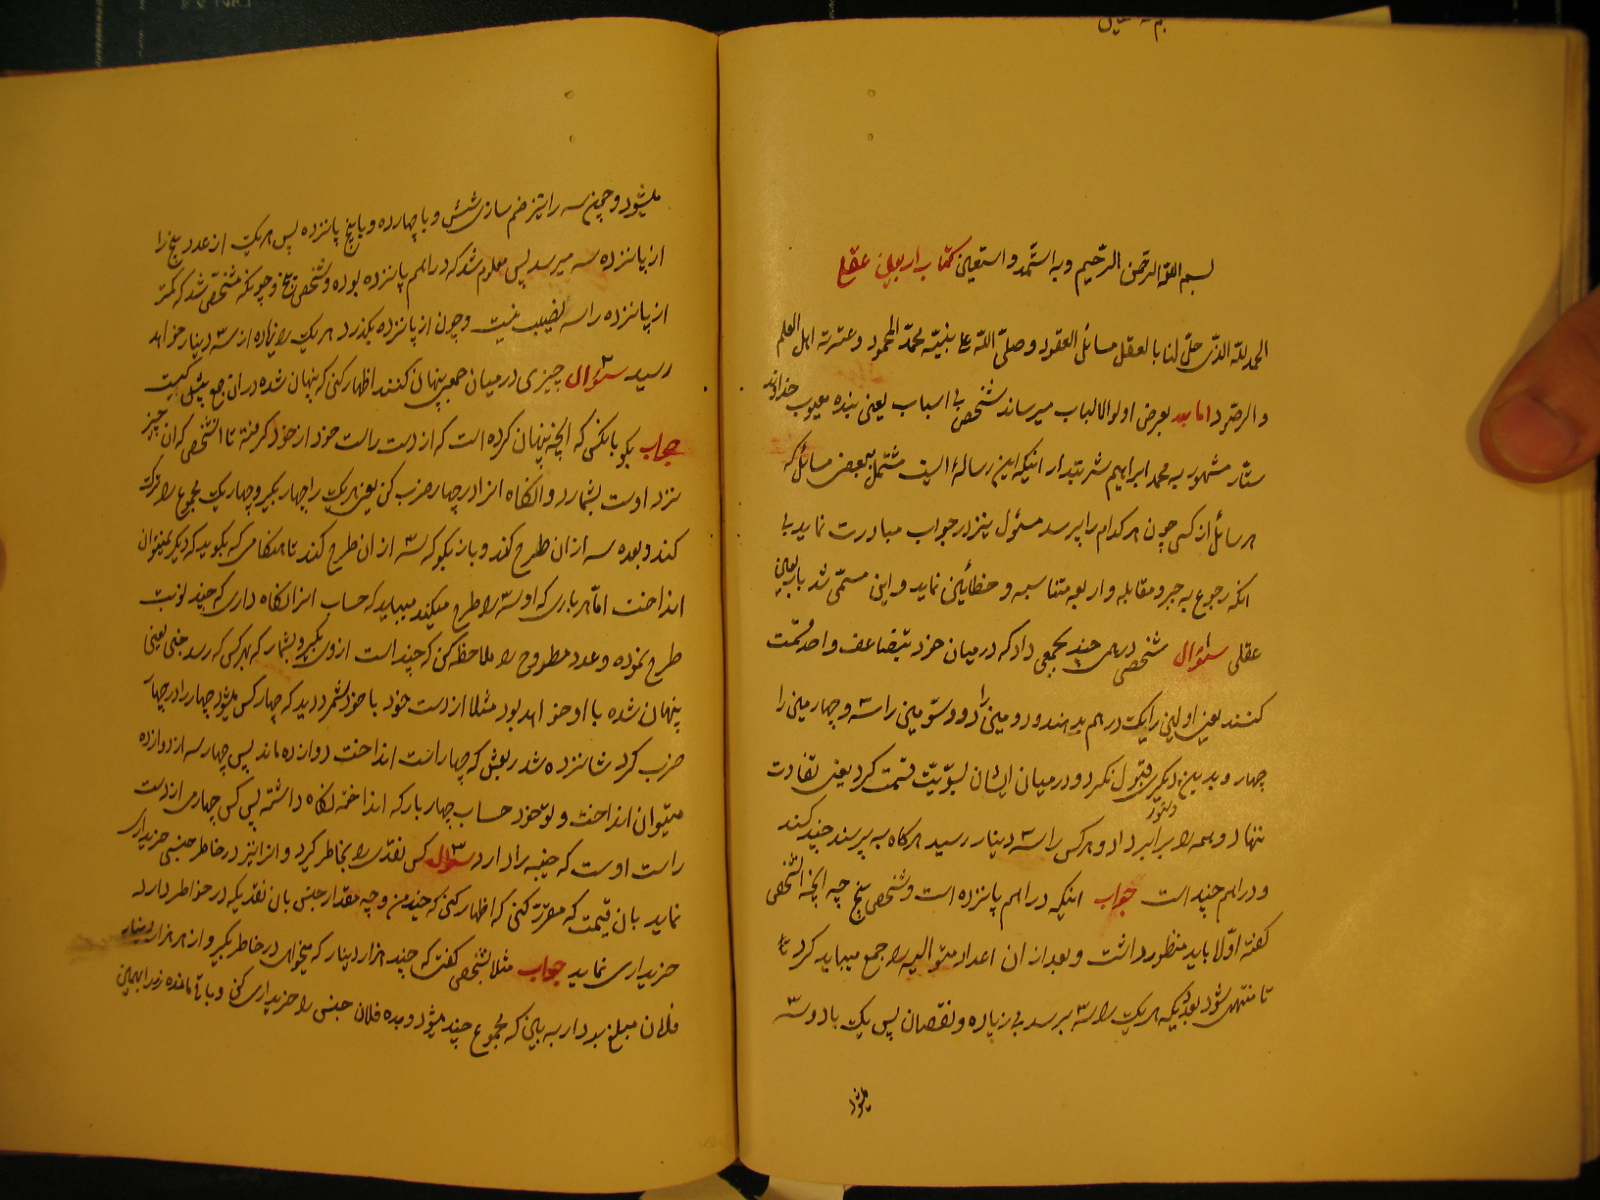 بسم الله الرحمن الرحیم وبه استمد واستعین کتاب اربعین عقلی
الحمد لله الذی حل لنا بالعقل مسائل العقود وصلی الله علی نبیه محمد المحمود وعترته اهل العلم
والرصود اما بعد بعرض اولو الالباب میرساند شخص بی اسباب یعنی بنده معیوب خداوند
ستار مشهور به محمد ابراهیم اینکه این رساله ایست مشتمل ببعض مسائل که
هر سائل از کسی چون هرکدام را پرسد مسئول نیز در جواب مبادرت نماید بی
انکه رجوع به جبر و مقابله و اربعه متناسبه و خطائین نماید و این مسمی شد باربعین
عقلی سؤال ۱ شخصی درهمی چند بجمعی داد که در میان خود بتضاعف واحد قسمت
کنند یعنی اولین را یک درهم بدهند و دومین را دو و سومین را سه و چهارمین را
چهار و بدین دیگری قبول نکرد و در میان ایشان بسویت قسمت کرد یعنی تفاوت
ننهاد و همه را برابر داد و هرکس را سه دینار رسید هرکاه به پرسند چند کسند
ودراهم چند است جواب اینکه دراهم پانزده است وشخص پنج چه انچه الشخص
کفته اولا باید منظور داشت و بعد از ان اعداد متوالیه را جمع میباید کرد تا
تا منتهی شود بعددیکه هر یک را سه برسد بی زیاده و نقصان پس یک با دو سه
میشود
میشود و چون سه را نیز ضم سازی شش و با چهار ده و با پنج پانزده پس هریک از عدد پنج را
از پانزده سه میرسد پس معلوم شد که دراهم پانزده بوده و شخص پنج و چونکه مشخص شد که کمتر
از پانزده را سه نصیب نیست و چون از پانزده بکذرد هر یک را زیاده از سه دینار خواهد
رسید سؤال ۲ چیزی در میان جمعی پنهان کنند اظهار کنی که پنهان شده در ان جمع پیش کیست
جواب بکو بانکس که انچه پنهان کرده است که از دست راست خود از خود کرفته تا الشخص که ان چیز
نزد اوست بشمارد و انکاه انرا در چهار ضرب کن یعنی هریک را چهار بکیر و چهار یک مجموع را ترک
کند و بعده سه از ان طرح کند و باز بکو که سه از ان طرح کند تا هنکامی که بکوید که دیکر نمیتوان
انداخت اما هر باری که او سه را طرح میکند میباید که حساب انرا نکاه داری که چند نوبت
طرح نموده و عدد مطروح را ملاحظه کن که چند است از وی بکیر و بشمار که بهرکس که رسد خبی یعنی
پنهان شده با او خواهد بود مثلا از دست خود با خود شمرد دید که چهار کس میشود چهار را در چهار
ضرب کرد شانزده شد ربعش که چهار است انداخت دوازده ماند پس چهار سه از دوازده
میتوان انداخت و تو خود حساب چهار بار که انداخته نکاه داشته پس کس چهارم از دست
راست اوست که خبیه را دارد سؤال ۳ کس نقدی را بخاطر کیرد و انرا نیز در خاطر جنسی خریداری
نماید بان قیمت که مقرر کنی که اظهار کنی که چند من و چه مقدار جنس بان نقدیکه در خواطر دارد
خریداری نماید جواب مثلا شخص کفت که چند هزار دینار که میخواهی در خاطر بکیر و از هر هزار دینار
فلان مبلغ بردار به بین که مجموع چند میشود و بده فلان جنس را خریداری کن و باتمامده